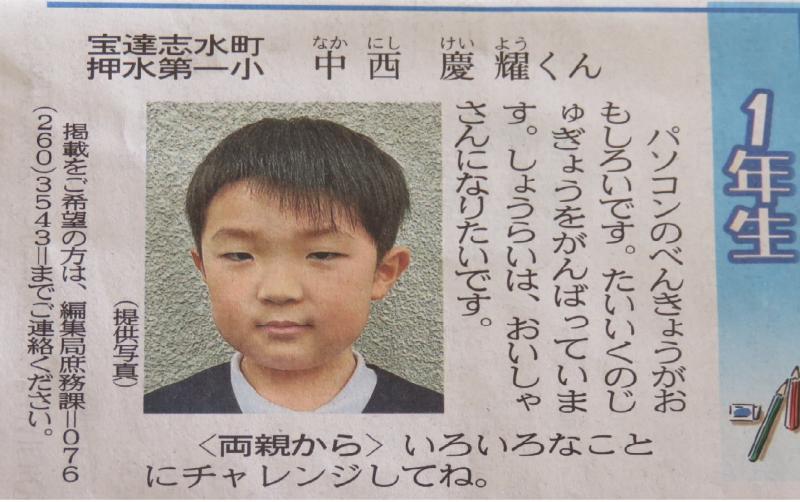 1年生
宝達志水町
押水第一小
中西 慶耀くん
なか にし けい よう
パソコンのべんきょうがお
もしろいです。たいいくのじ
ゅぎょうをがんばっていま
す。しょうらいは、おいしゃ
さんになりたいです。
(提供写真)
〈両親から〉いろいろなこと
にチャレンジしてね。
掲載をご希望の方は、編集局庶務課=076
(260)3543=までご連絡ください。